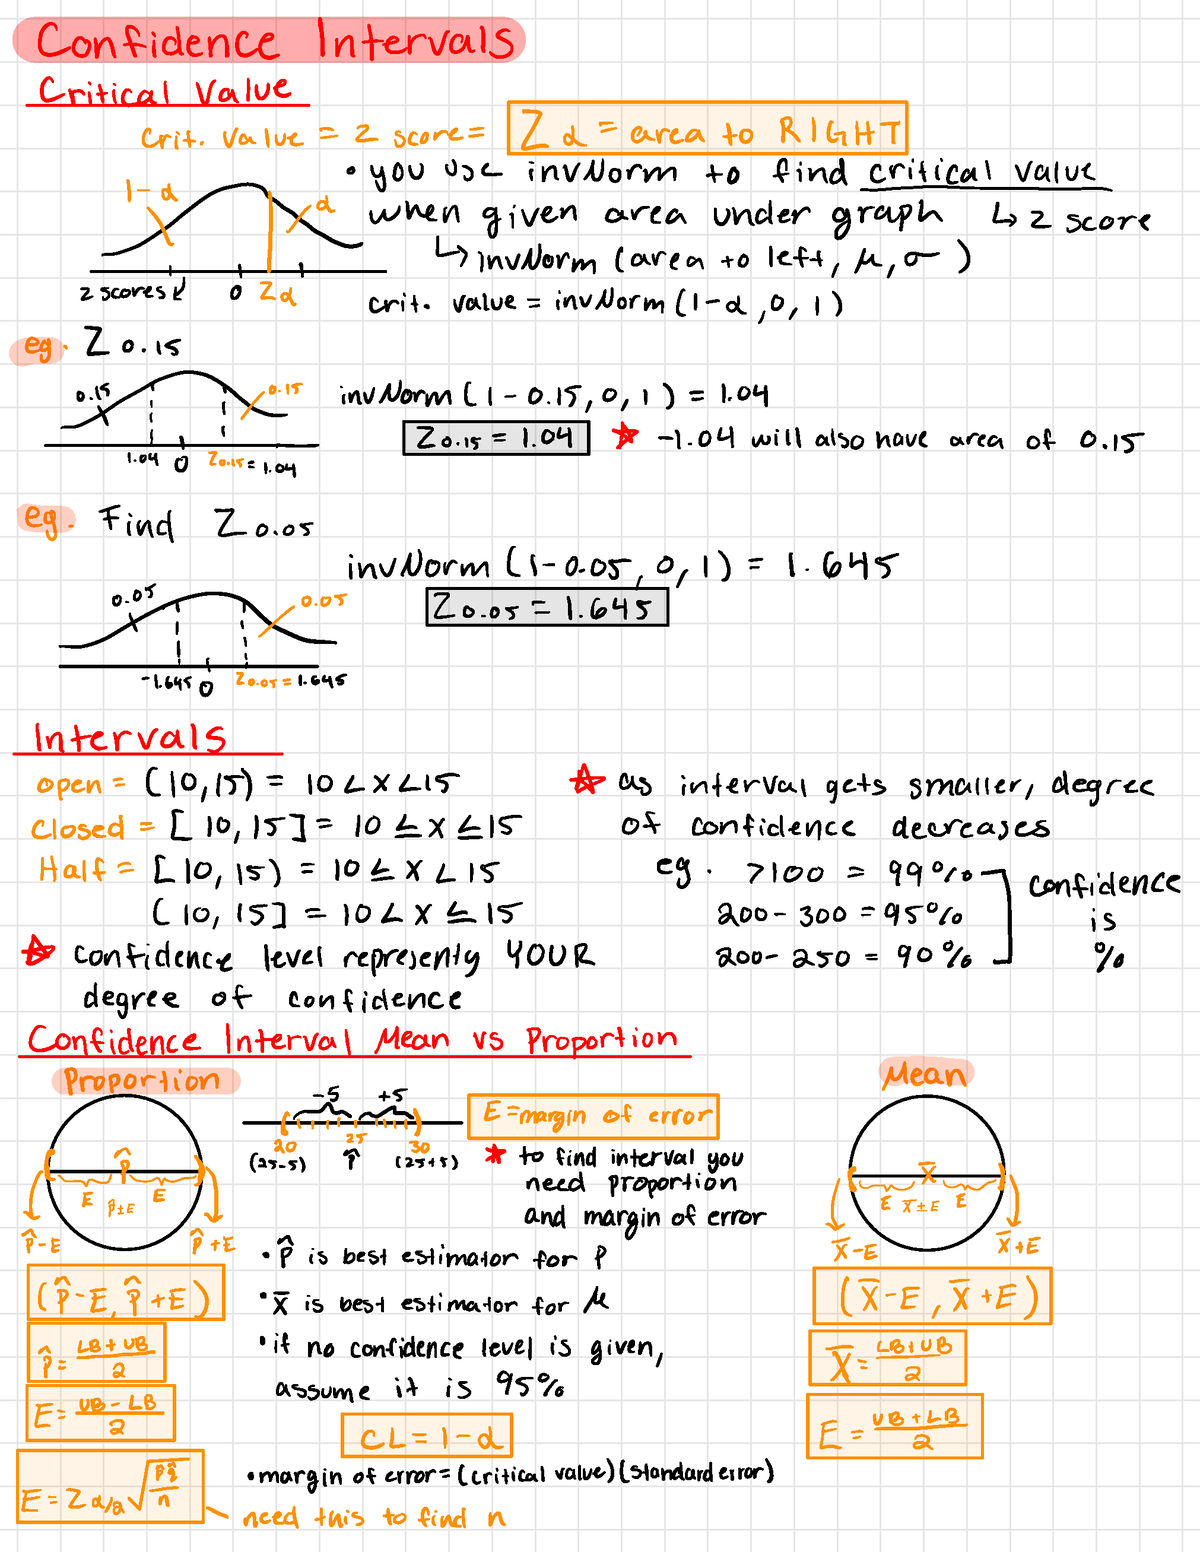 Confidence Intervals
Critical Value
Crit. Value = Z score = Zα = area to RIGHT
• you use invNorm to find critical value
when given area under graph ↳ z score
↳ invNorm (area to left, μ, σ)
crit. value = invNorm (1-α, 0, 1)
1-α
α
z scores
0 Zα
eg. Z 0.15
0.15
0.15
1.04 0 Z0.15 = 1.04
invNorm (1-0.15, 0, 1) = 1.04
Z0.15 = 1.04 ★ -1.04 will also have area of 0.15
eg. Find Z0.05
invNorm (1-0.05, 0, 1) = 1.645
Z0.05 = 1.645
0.05
0.05
-1.645 0 Z0.05 = 1.645
Intervals
open = (10,15) = 10 < X < 15
Closed = [10, 15] = 10 ≤ X ≤ 15
Half = [10, 15) = 10 ≤ X < 15
(10, 15] = 10 < X ≤ 15
☆ confidence level represents YOUR
degree of confidence
☆ as interval gets smaller, degree
of confidence decreases
eg. >100 = 99%
200-300 = 95%
200-250 = 90%
confidence
is
%
Confidence Interval Mean vs Proportion
Proportion
p̂
E p̂±E E
p̂-E p̂+E
(p̂-E, p̂+E)
p̂ = LB+UB / 2
E = UB-LB / 2
E = Zα/2 √(p̂q̂/n)
need this to find n
-5 +5
20 25 30
(25-5) p̂ (25+5)
E = margin of error
★ to find interval you
need proportion
and margin of error
• p̂ is best estimator for p
• x̄ is best estimator for μ
• if no confidence level is given,
assume it is 95%
CL = 1-α
• margin of error = (critical value)(standard error)
Mean
x̄
E x̄±E E
x̄-E x̄+E
(x̄-E, x̄+E)
x̄ = LB+UB / 2
E = UB+LB / 2